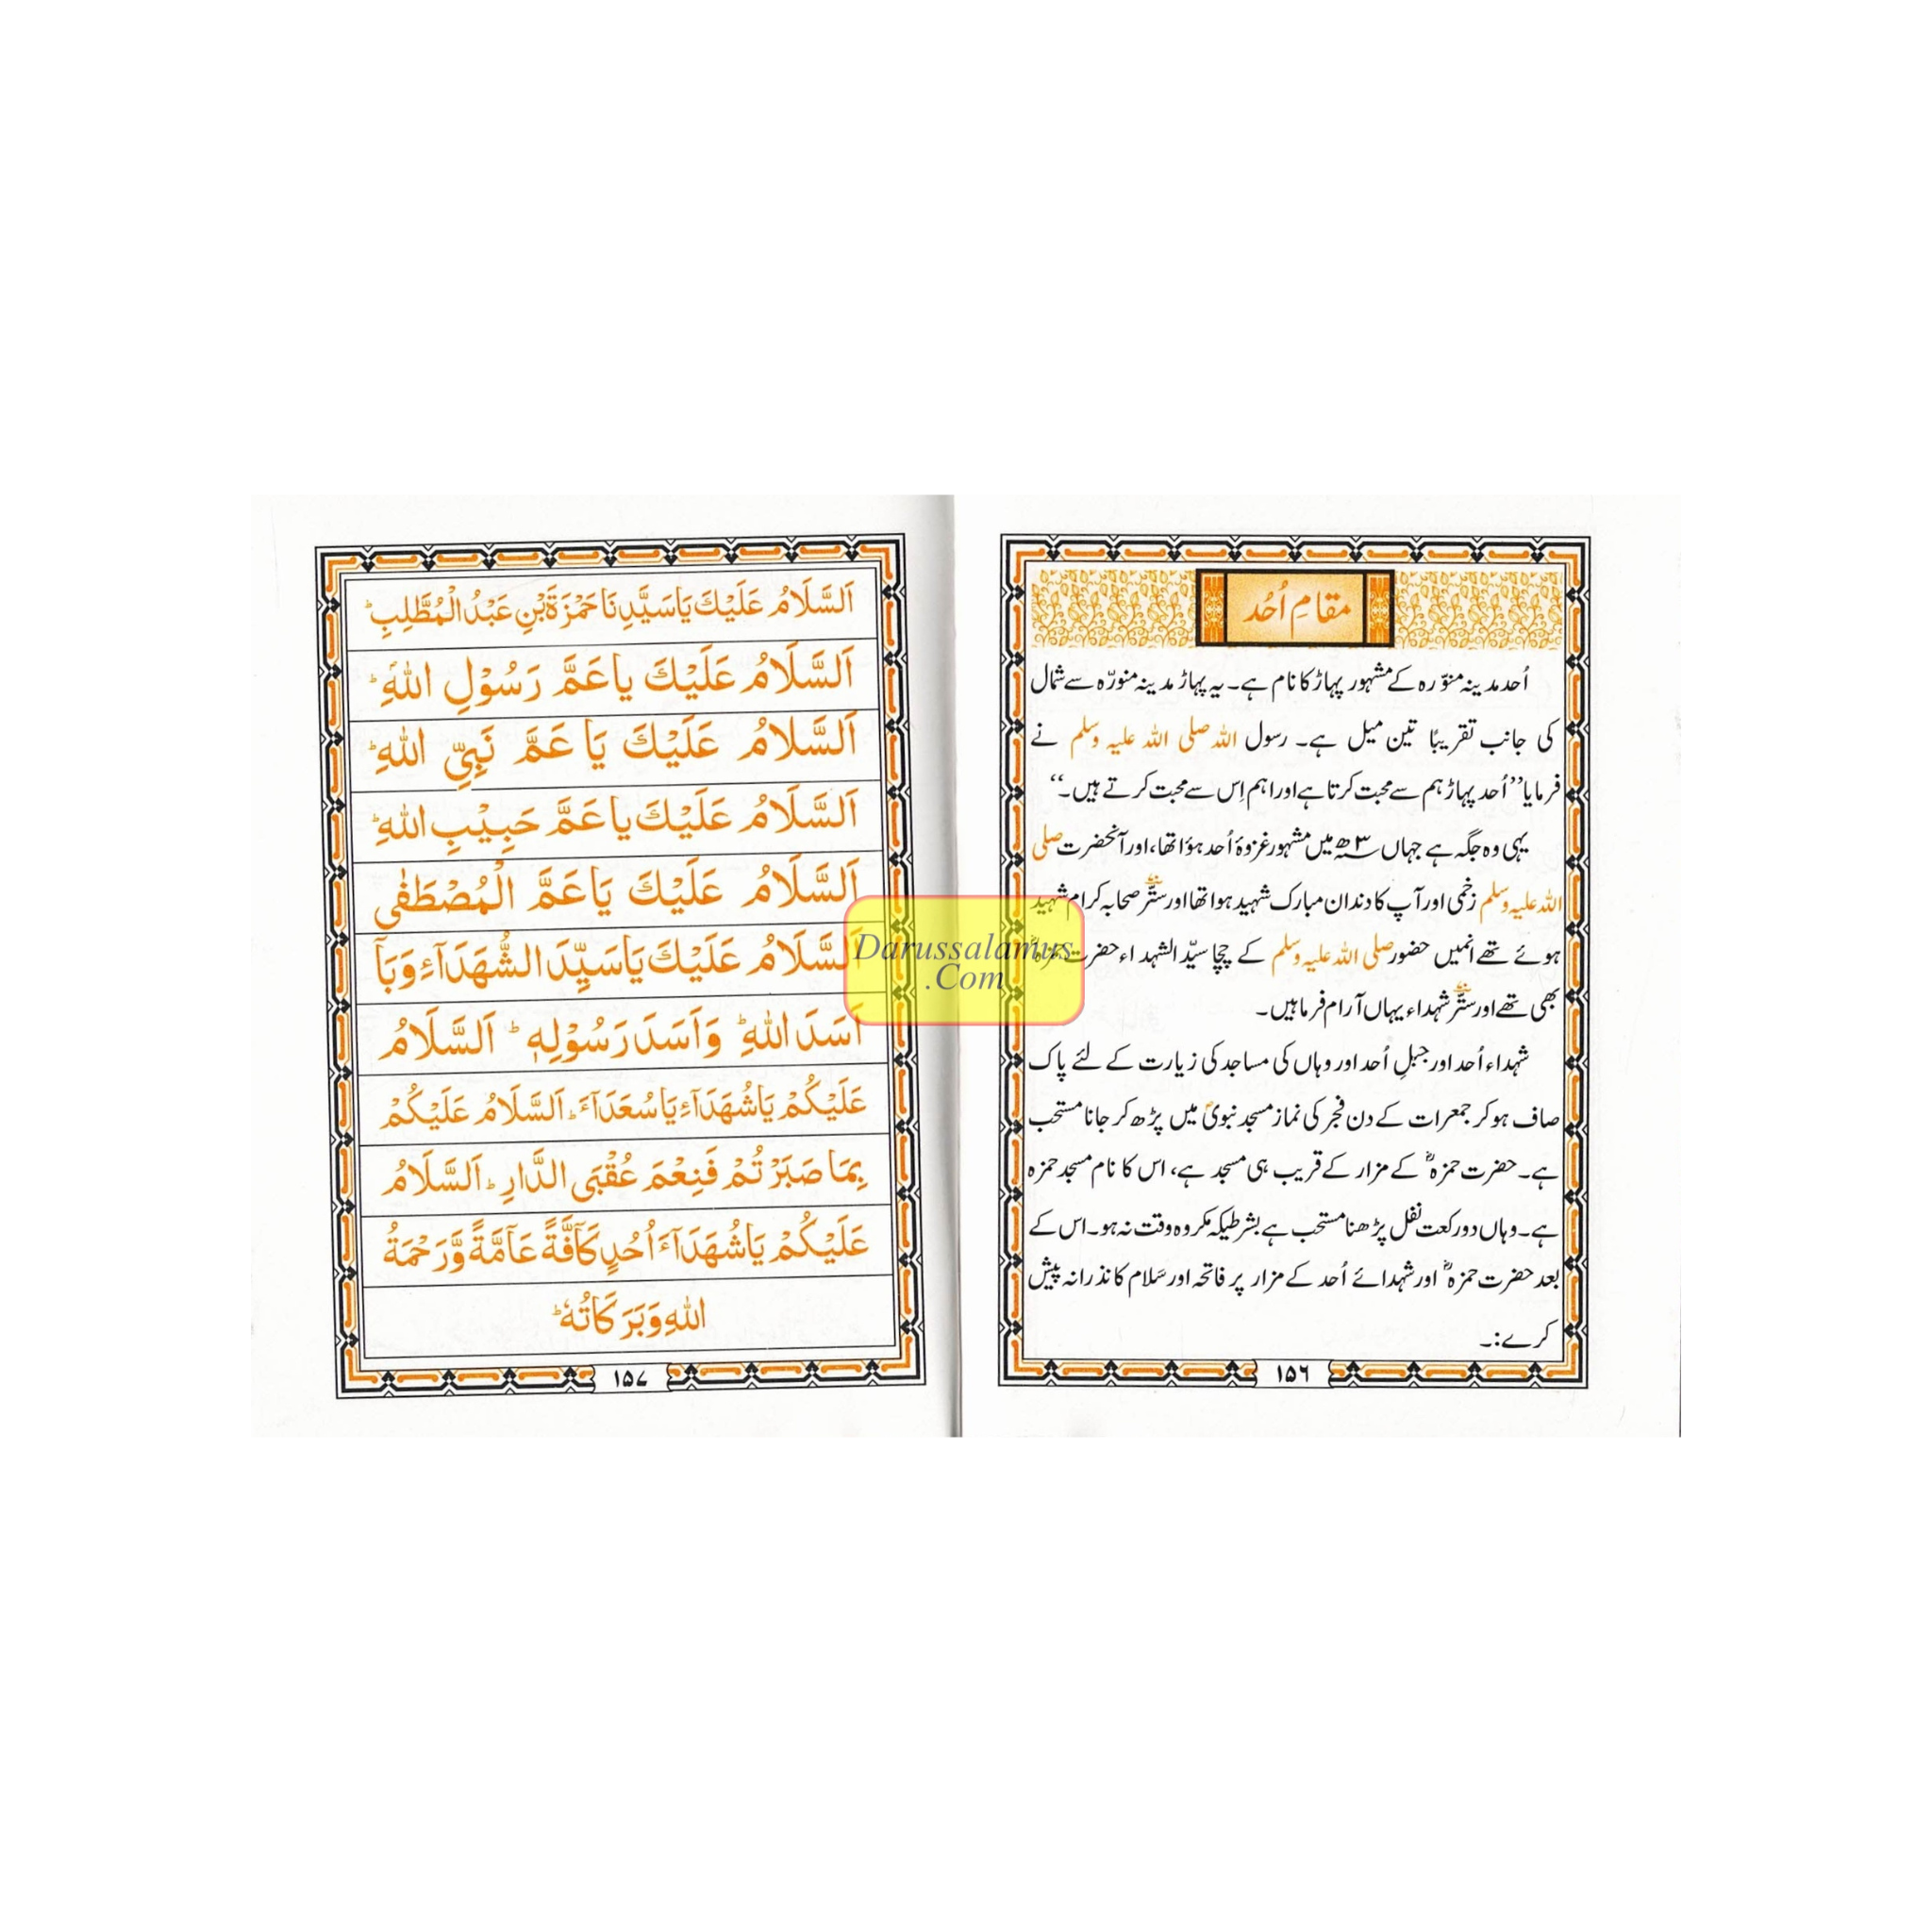 مقامِ اُحُد
اُحد مدینہ منوّرہ کے مشہور پہاڑ کا نام ہے۔ یہ پہاڑ مدینہ منورّہ سے شمال
کی جانب تقریباً تین میل ہے۔ رسول اللہ صلی اللہ علیہ وسلم نے
فرمایا ’’اُحد پہاڑ ہم سے محبت کرتا ہے اور اہم اِس سے محبت کرتے ہیں۔‘‘
یہی وہ جگہ ہے جہاں ۳ھ میں مشہور غزوۂ اُحد ہؤا تھا، اور آنحضرت صلی
اللہ علیہ وسلم زخمی اور آپ کا دندان مبارک شہید ہوا تھا اور ستّر صحابہ کرام شہید
ہوئے تھے انمیں حضور صلی اللہ علیہ وسلم کے چچا سیّد الشہداء حضرت
بھی تھے اور ستّر شہداء یہاں آرام فرما ہیں۔
شہداء اُحد اور جبلِ اُحد اور وہاں کی مساجد کی زیارت کے لئے پاک
صاف ہو کر جمعرات کے دن فجر کی نماز مسجد نبویؐ میں پڑھ کر جانا مستحب
ہے۔ حضرت حمزہؓ کے مزار کے قریب ہی مسجد ہے، اس کا نام مسجد حمزہ
ہے۔ وہاں دو رکعت نفل پڑھنا مستحب ہے بشرطیکہ مکروہ وقت نہ ہو۔ اس کے
بعد حضرت حمزہؓ اور شہدائے اُحد کے مزار پر فاتحہ اور سَلام کا نذرانہ پیش
کرے:۔
۱۵۶
اَلسَّلَامُ عَلَيْكَ يَاسَيَّدِنَا حَمْزَةَ بْنِ عَبْدُ الْمُطَّلِبِ ؕ
اَلسَّلَامُ عَلَيْكَ ياعَمَّ رَسُوْلِ اللهِ ؕ
اَلسَّلَامُ عَلَيْكَ يَا عَمَّ نَبِيِّ اللهِ ؕ
اَلسَّلَامُ عَلَيْكَ ياعَمَّ حَبِيْبِ اللهِ ؕ
اَلسَّلَامُ عَلَيْكَ يَاعَمَّ الْمُصْطَفٰى
اَلسَّلَامُ عَلَيْكَ يَاسَيِّدَ الشُّهَدَآءِ وَيَآ
اَسَدَ اللهِ ؕ وَاَسَدَ رَسُوْلِهٖ ؕ اَلسَّلَامُ
عَلَيْكُمْ يَاشُهَدَآءُ يَاسُعَدَآءَ ؕ اَلسَّلَامُ عَلَيْكُمْ
بِمَا صَبَرْتُمْ فَنِعْمَ عُقْبَى الدَّارِ ؕ اَلسَّلَامُ
عَلَيْكُمْ يَاشُهَدَآءَ اُحُدٍ كَآفَّةً عَآمَّةً وَّرَحْمَةُ
اللهِ وَبَرَكَاتُهٗ ؕ
۱۵۷
Darussalamys
.Com